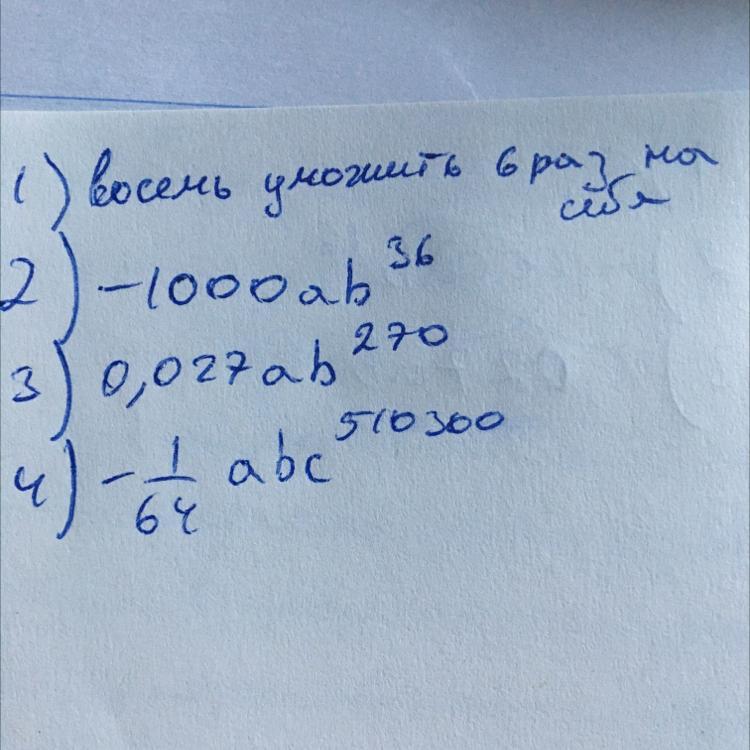 1) восемь умножить 6 раз на
себя
2) -1000ab^36
3) 0,027ab^270
4) -1/64 abc^510300